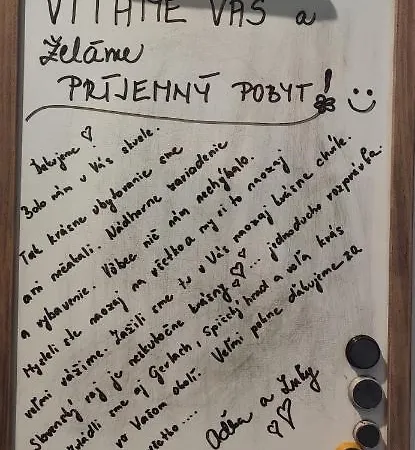 VITAME VÁS a
želáme
PRÍJEMNÝ POBYT!
Ďakujeme
Bolo nám u Vás skvele.
Tak krásne ubytovanie sme
ani nečakali. Nádherne zariadenie
a vybavenie. Vôbec nič nám nechýbalo.
Mysleli ste naozaj na všetko a my si to naozaj
veľmi vážime. Zažili sme tu u Vás naozaj krásne chvíle.
Slovenský raj je neskutočne krásny ... jednoducho rozprávka.
sme aj Gerlach, Spišský hrad a veľa krás
vo Vašom okolí. Veľmi pekne ďakujeme za
všetko ....
a